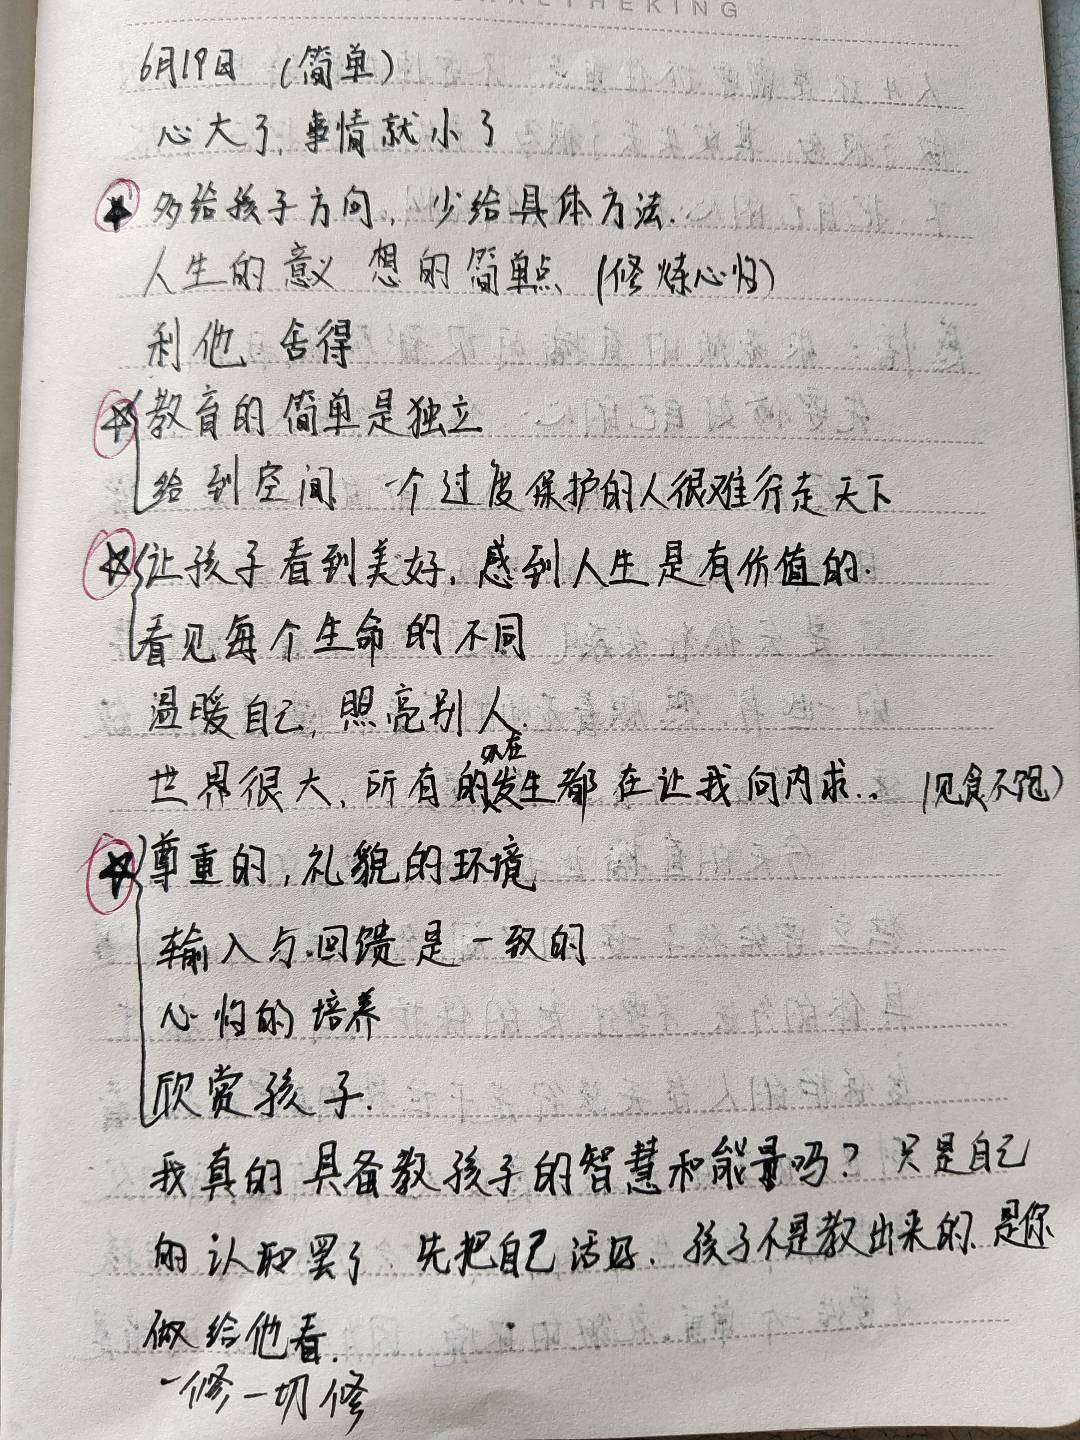 6月19日 (简单)
心大了,事情就小了
多给孩子方向,少给具体方法.
人生的意义 想的简单点 (修炼心性)
利他 舍得
教育的简单是独立
给到空间 一个过度保护的人很难行走天下
让孩子看到美好,感到人生是有价值的.
看见每个生命的不同
温暖自己,照亮别人.
世界很大,所有的外在发生都在让我向内求.. (见食不饱)
尊重的,礼貌的环境
输入与回馈是一致的
心性的培养
欣赏孩子.
我真的具备教孩子的智慧和能量吗? 只是自己
的认知罢了 先把自己活好. 孩子不是教出来的、是你
做给他看.
一修一切修